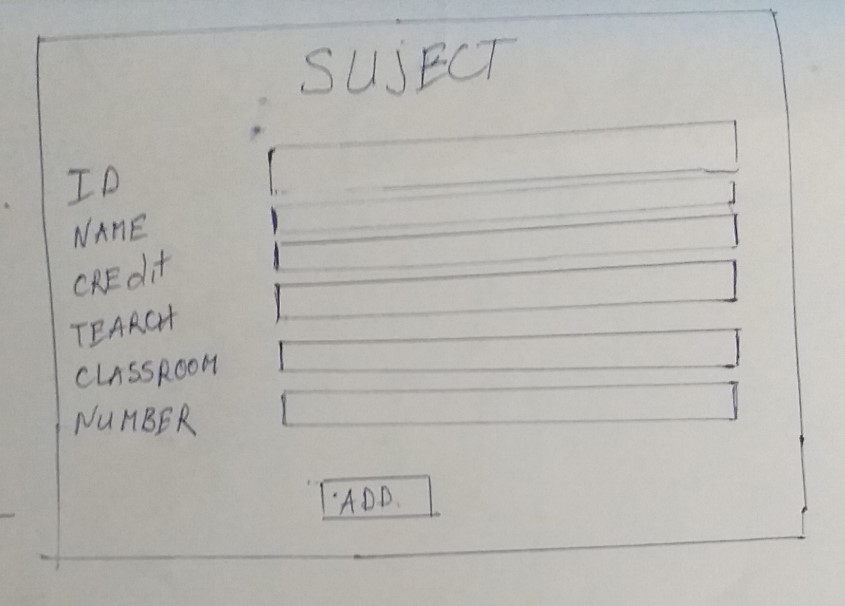 SUJECT
ID
NAME
CREdit
TEARCH
CLASSROOM
NUMBER
ADD